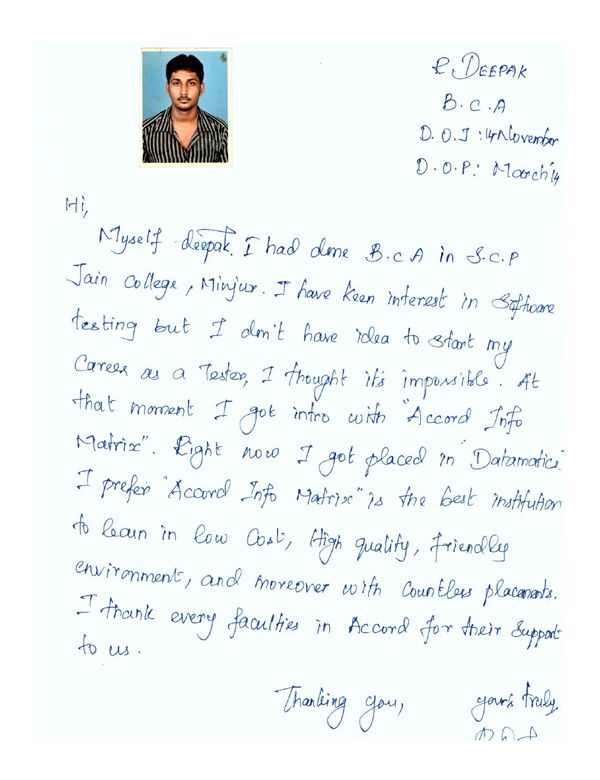 R. DEEPAK
B.C.A
D.O.J : 14 November
D.O.P : March'14
Hi,
Myself deepak. I had done B.C.A in S.C.P
Jain College, Minjur. I have keen interest in Software
testing but I don't have idea to start my
Career as a Tester, I thought its impossible. At
that moment I got intro with "Accord Info
Matrix". Right now I got placed in "Datamatics".
I prefer "Accord Info Matrix" is the best institution
to learn in low Cost, High quality, friendly
environment, and moreover with countless placements.
I thank every faculties in Accord for their Support
to us.
Thanking you, yours truly,